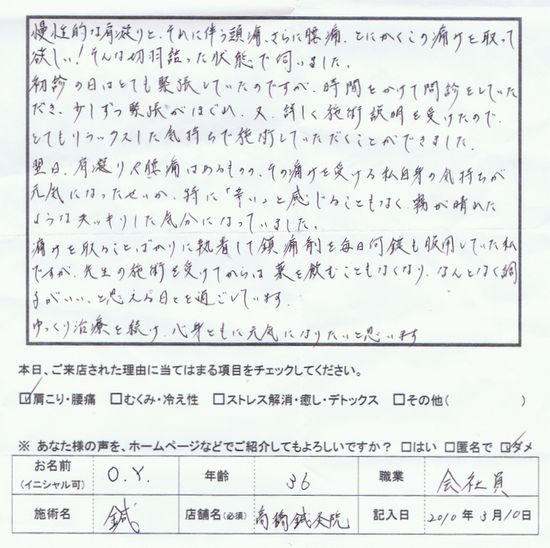 慢性的な肩凝りと、それに伴う頭痛、さらに腰痛、とにかくこの痛みを取って
欲しい！そんな切羽詰った状態で伺いました。
初診の日はとても緊張していたのですが、時間をかけて問診をしていた
だき、少しずつ緊張がほぐれ、又、詳しく施術説明を受けたので、
とてもリラックスした気持ちで施術していただくことができました。
翌日、肩凝りや腰痛はあるものの、その痛みを受ける私自身の気持ちが
元気になったせいか、特に「辛い」と感じることもなく、霧が晴れた
ようなスッキリした気分になっていました。
痛みを取ることばかりに執着して鎮痛剤を毎日何錠も服用していた私
ですが、先生の施術を受けてからは薬を飲むこともなくなり、なんとなく調
子がいい、と思える日々を過ごしています。
ゆっくり治療を続け、心身ともに元気になりたいと思います
本日、ご来店された理由に当てはまる項目をチェックしてください。
☑肩こり・腰痛 □むくみ・冷え性 □ストレス解消・癒し・デトックス □その他( )
※ あなた様の声を、ホームページなどでご紹介してもよろしいですか？ □はい □匿名で ☑ダメ
お名前 (イニシャル可) O.Y. 年齢 36 職業 会社員
施術名 鍼 店舗名(必須) 高橋鍼灸院 記入日 2010年3月10日